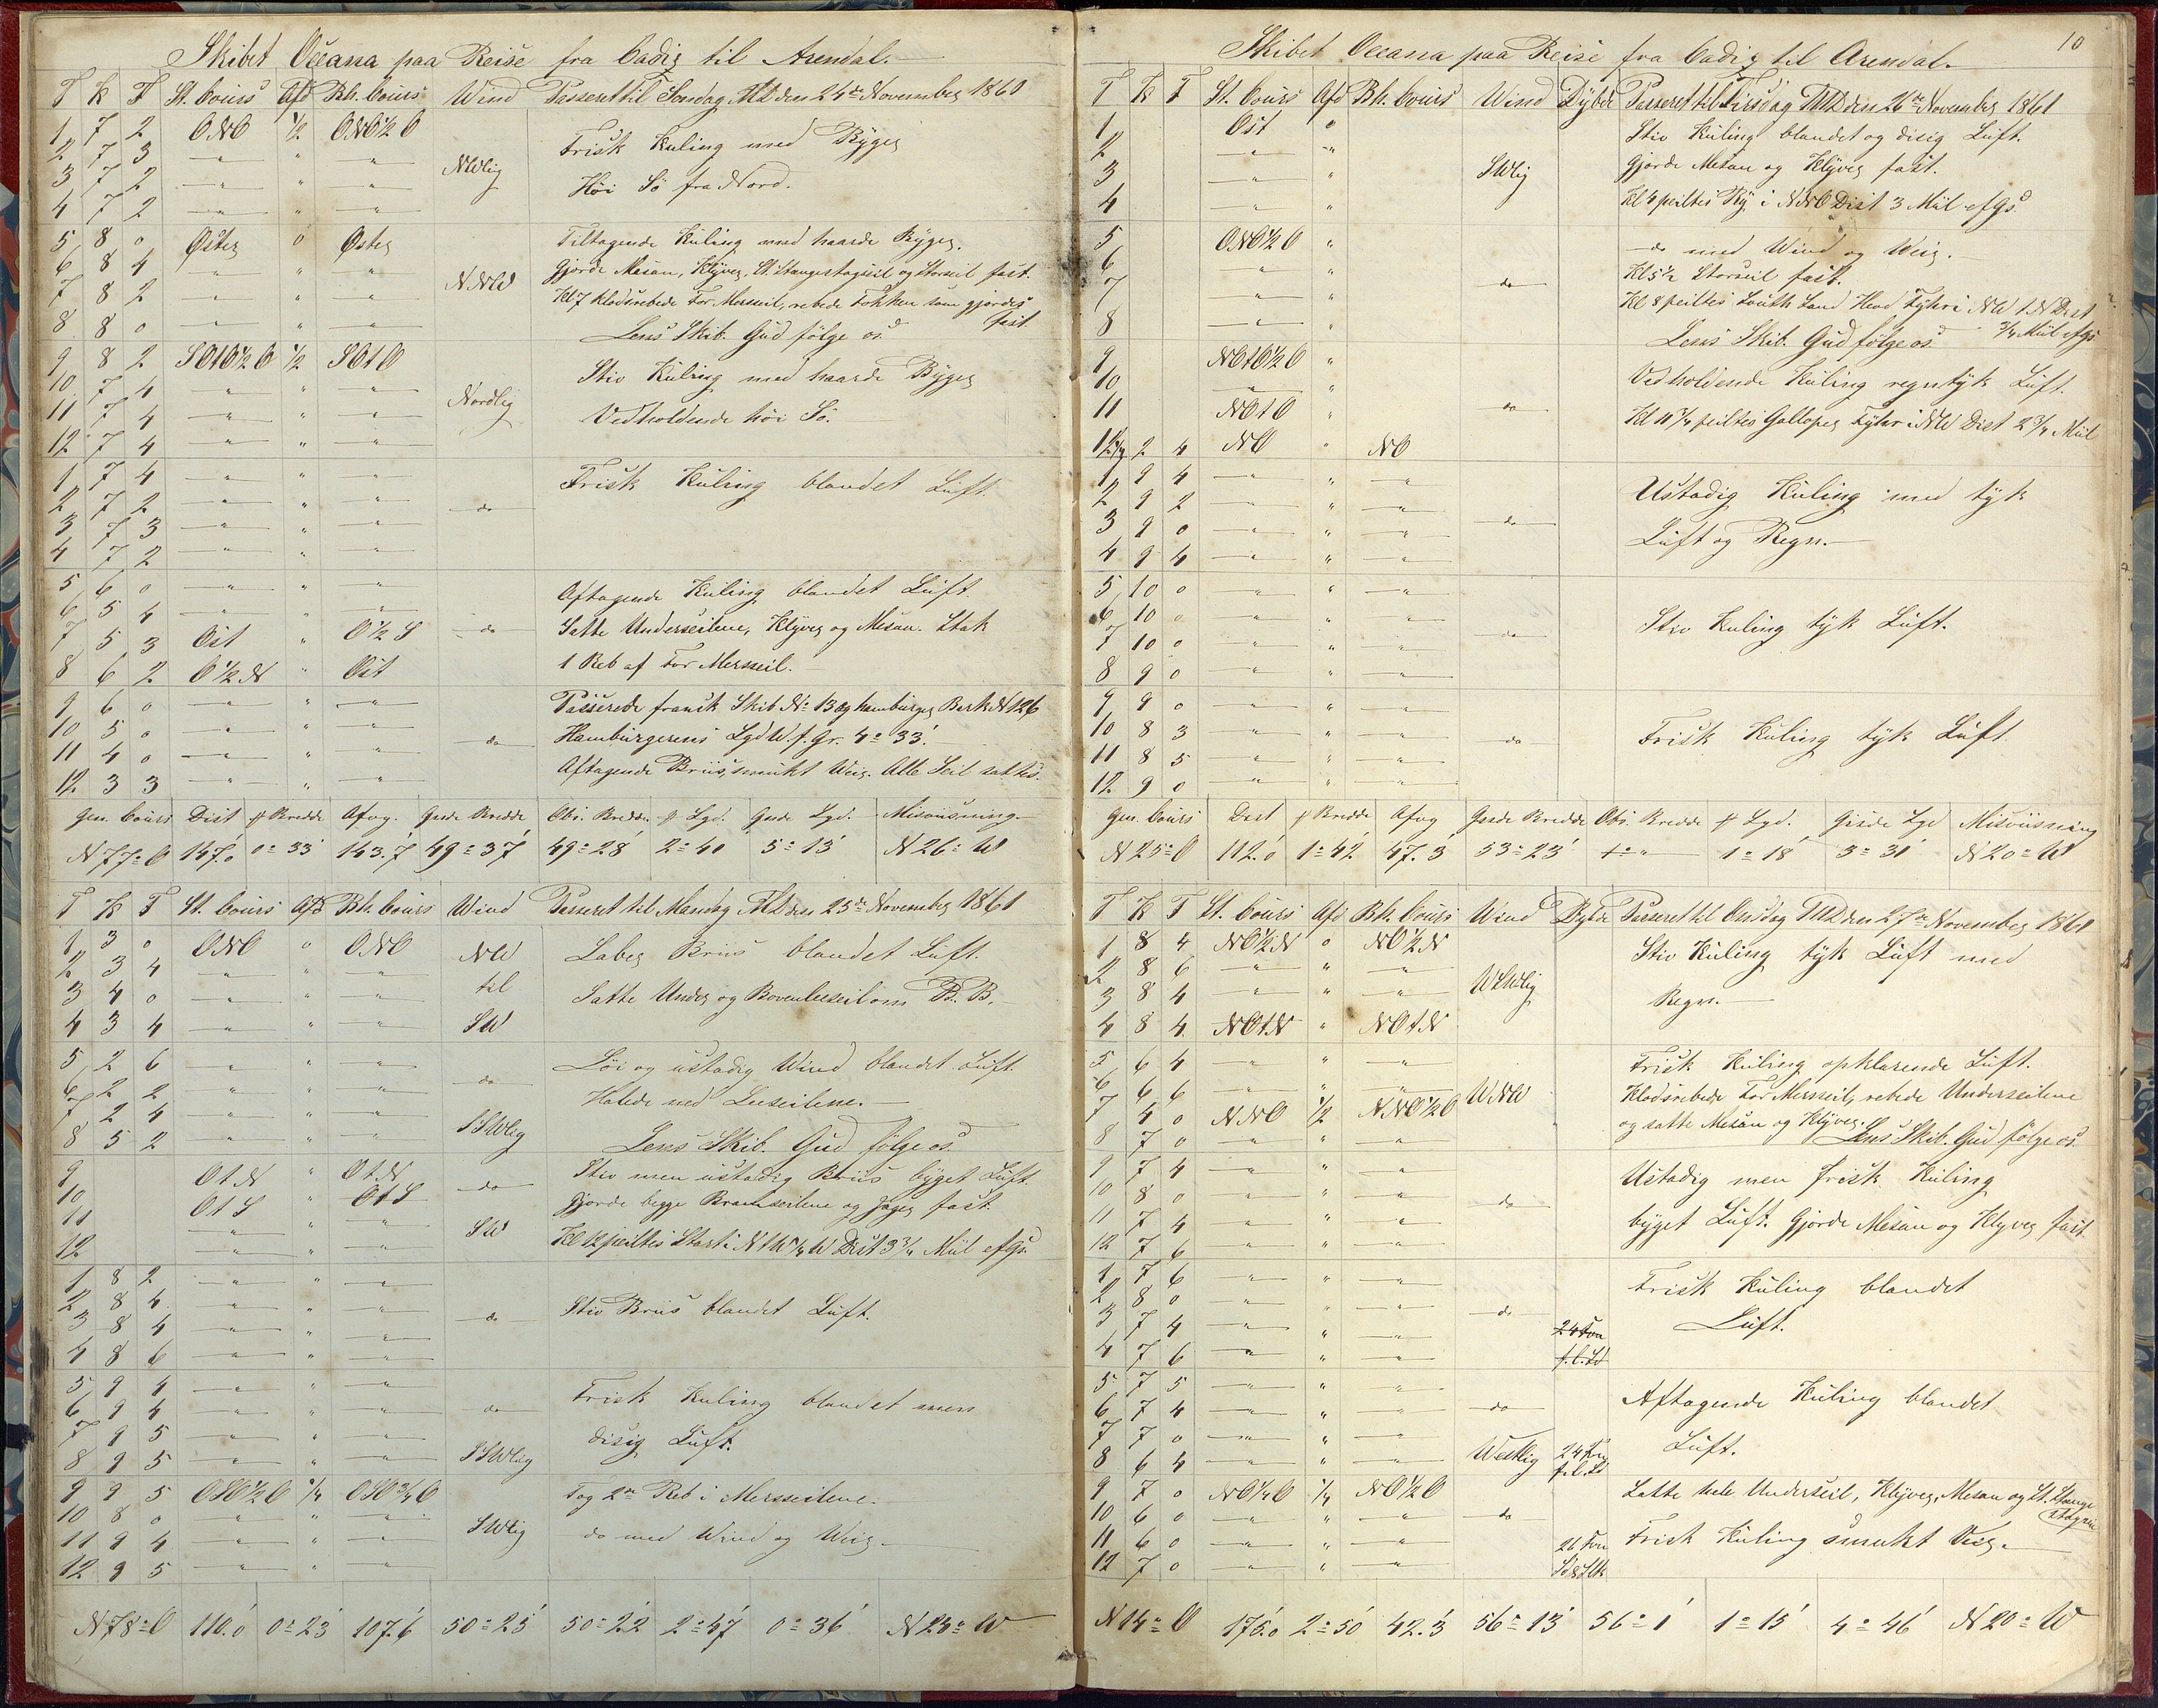 Skibet Oceana paa Reise fra Cadiz til Arendal.
T K F St. Cours Afd Bh. Cours Wind Passeret til Søndag Md den 24de November 1861
1 7 2 ONO ½ ONO½O
2 7 3 — " — Frisk Kuling med Byger
3 7 2 — " — NWlig
4 7 2 — " — Höi Sö fra Nord.
5 8 0 Öster 0 Öster Tiltagende Kuling med haarde Byger.
6 8 4 — " — Gjorde Mesan, Klyver, St. Stangestagseil og Storseil fast.
7 8 2 — " — NNW Kl 7 klodsrebede For Mersseil, rebede Fokken som gjordes fast.
8 8 0 — " — Lens Skib. Gud fölge os.
9 8 2 SOtO½O ½ SOtO Stiv Kuling med haarde Byger
10 7 4 — " — Nordlig
11 7 4 — " — Vedholdende höi Sö.
12 7 4 — " —
1 7 4 — " — Frisk Kuling blandet Luft.
2 7 2 — " — do
3 7 3 — " —
4 7 2 — " —
5 6 0 — " — Aftagende Kuling blandet Luft.
6 5 4 — " —
7 5 3 Ost " O½S do Satte Underseilene, Klyver og Mesan. Stak
8 6 2 O½N " Ost 1 Reb af For Mersseil.
9 6 0 — " — Passerede fransk Skib No 13 og hamburger Bark N 126
10 5 0 — " — do Hamburgerens Lgd W. f. Gr. 4° 33'.
11 4 0 — " —
12 3 3 — " — Aftagende Briis, smukt Veir. Alle Seil sattes.
Gen. Cours Dist fr Bredde Afvg. Gisde Bredde Obs. Bredde fr Lgd. Gisde Lgd. Misviisning
N 77° O 147,0 0° 33' 143,7 49° 37' 49° 28' 2° 40 5° 13' N 26° W
T K F St. Cours Afd Bh. Cours Wind Passeret til Mandag Md den 25de November 1861
1 3 0 ONO 0 ONO NW Laber Briis blandet Luft.
2 3 4 — " —
3 4 0 — " — til Satte Under og Bovenleeseil om B. B.
4 3 4 — " — SW
5 2 6 — " — Löi og ustadig Wind blandet Luft.
6 2 2 — " — do
7 2 4 — " — Halede ned Leeseilene.
8 5 2 — " — SSWlig Lens Skib. Gud fölge os.
9 OtN " OtN do Stiv men ustadig Briis byget Luft.
10 OtS " OtS Gjorde begge Bramseilene og Jager fast.
11 — " — SW
12 — " — Kl 12 peiltes Start i NtW¼W Dist 3¾ Miil efGs.
1 8 2 — " —
2 8 4 — " — do Stiv Briis blandet Luft.
3 8 4 — " —
4 8 6 — " —
5 9 4 — " — Frisk Kuling blandet men
6 9 4 — " — do
7 9 5 — " — disig Luft.
8 9 5 — " — SSWlig
9 9 5 OSO½O ¼ OSO¾O Tog 2de Reb i Mersseilene.
10 8 0 — " — SWlig
11 9 4 — " — do med Wind og Weir.
12 9 5 — " —
N 78° O 110,0 0° 23' 107,6 50° 25' 50° 22 2° 47' 0° 36' N 23° W
10
Skibet Oceana paa Reise fra Cadiz til Arendal.
T K F St. Cours Afd Bh. Cours Wind Dybde Passeret til Tirsdag Md den 26de November 1861
1 Ost 0 Stiv Kuling blandet og disig Luft.
2 — "
3 — " SWlig Gjorde Mesan og Klyver fast.
4 — " Kl 4 peiltes Ry i NNO Dist 3 Miil efGs.
5 ONO½O " do med Wind og Weir.
6 — " Kl 5½ Storseil fast.
7 — " do
8 — " Kl 8 peiltes South Land Hend Fyhr i NWtN Dist ¾ Miil efGs
Lens Skib. Gud fölge os.
9 NOtO½O " Vedholdende Kuling regntyk Luft.
10 — "
11 NOtO " do Kl 11¾ peiltes Galloper Fyhr i NW Dist 2¾ Miil
12¼ 2 4 NO " NO
1 9 4 — " — Ustadig Kuling med tyk
2 9 2 — " —
3 9 0 — " — do
4 9 4 — " — Luft og Regn.
5 10 0 — " —
6 10 0 — " — Stiv Kuling tyk Luft.
7 10 0 — " — do
8 9 0 — " —
9 9 0 — " —
10 8 3 — " — do Frisk Kuling tyk Luft.
11 8 5 — " —
12 9 0 — " —
Gen. Cours Dist fr Bredde Afvg Gisde Bredde Obs. Bredde fr Lgd. Gisde Lgd Misviisning
N 25° O 112,0 1° 42' 47,3 53° 23' 1° 18' 3° 31' N 20° W
T K F St. Cours Afd Bh. Cours Wind Dybde Passeret til Onsdag Md den 27de November 1861
1 8 4 NO½N 0 NO½N Stiv Kuling tyk Luft med
2 8 6 — " — WSWlig
3 8 4 — " — Regn.
4 8 4 NOtN " NOtN
5 6 4 — " — Frisk Kuling opklarende Luft.
6 6 6 — " — WNW Klodsrebede For Mersseil, rebede Underseilene
7 4 0 NNO ½ NNO½O og satte Mesan og Klyver.
8 7 0 — " — Lens Skib. Gud fölge os.
9 7 4 — " — Ustadig men frisk Kuling
10 8 0 — " — do
11 7 4 — " — byget Luft. Gjorde Mesan og Klyver fast
12 7 6 — " —
1 7 6 — " — Frisk Kuling blandet
2 8 0 — " — do
3 7 4 — " — 24 Fvn Luft.
4 7 6 — " — f. l. Sd
5 7 5 — " — Aftagende Kuling blandet
6 7 4 — " — do
7 7 0 — " — Luft.
8 6 4 — " — Westlig 24 Fvn f. l. Sd
9 7 0 NO¼O ¼ NO½O Satte hele Underseil, Klyver, Mesan og St. Stange Stagseil
10 6 0 — " — do
11 6 0 — " — 26 Fvn Frisk Kuling smukt Veir.
12 7 0 — " —
N 14° O 175,0 2° 50' 42,3 56° 13' 56° 1' 1° 15' 4° 46' N 20° W